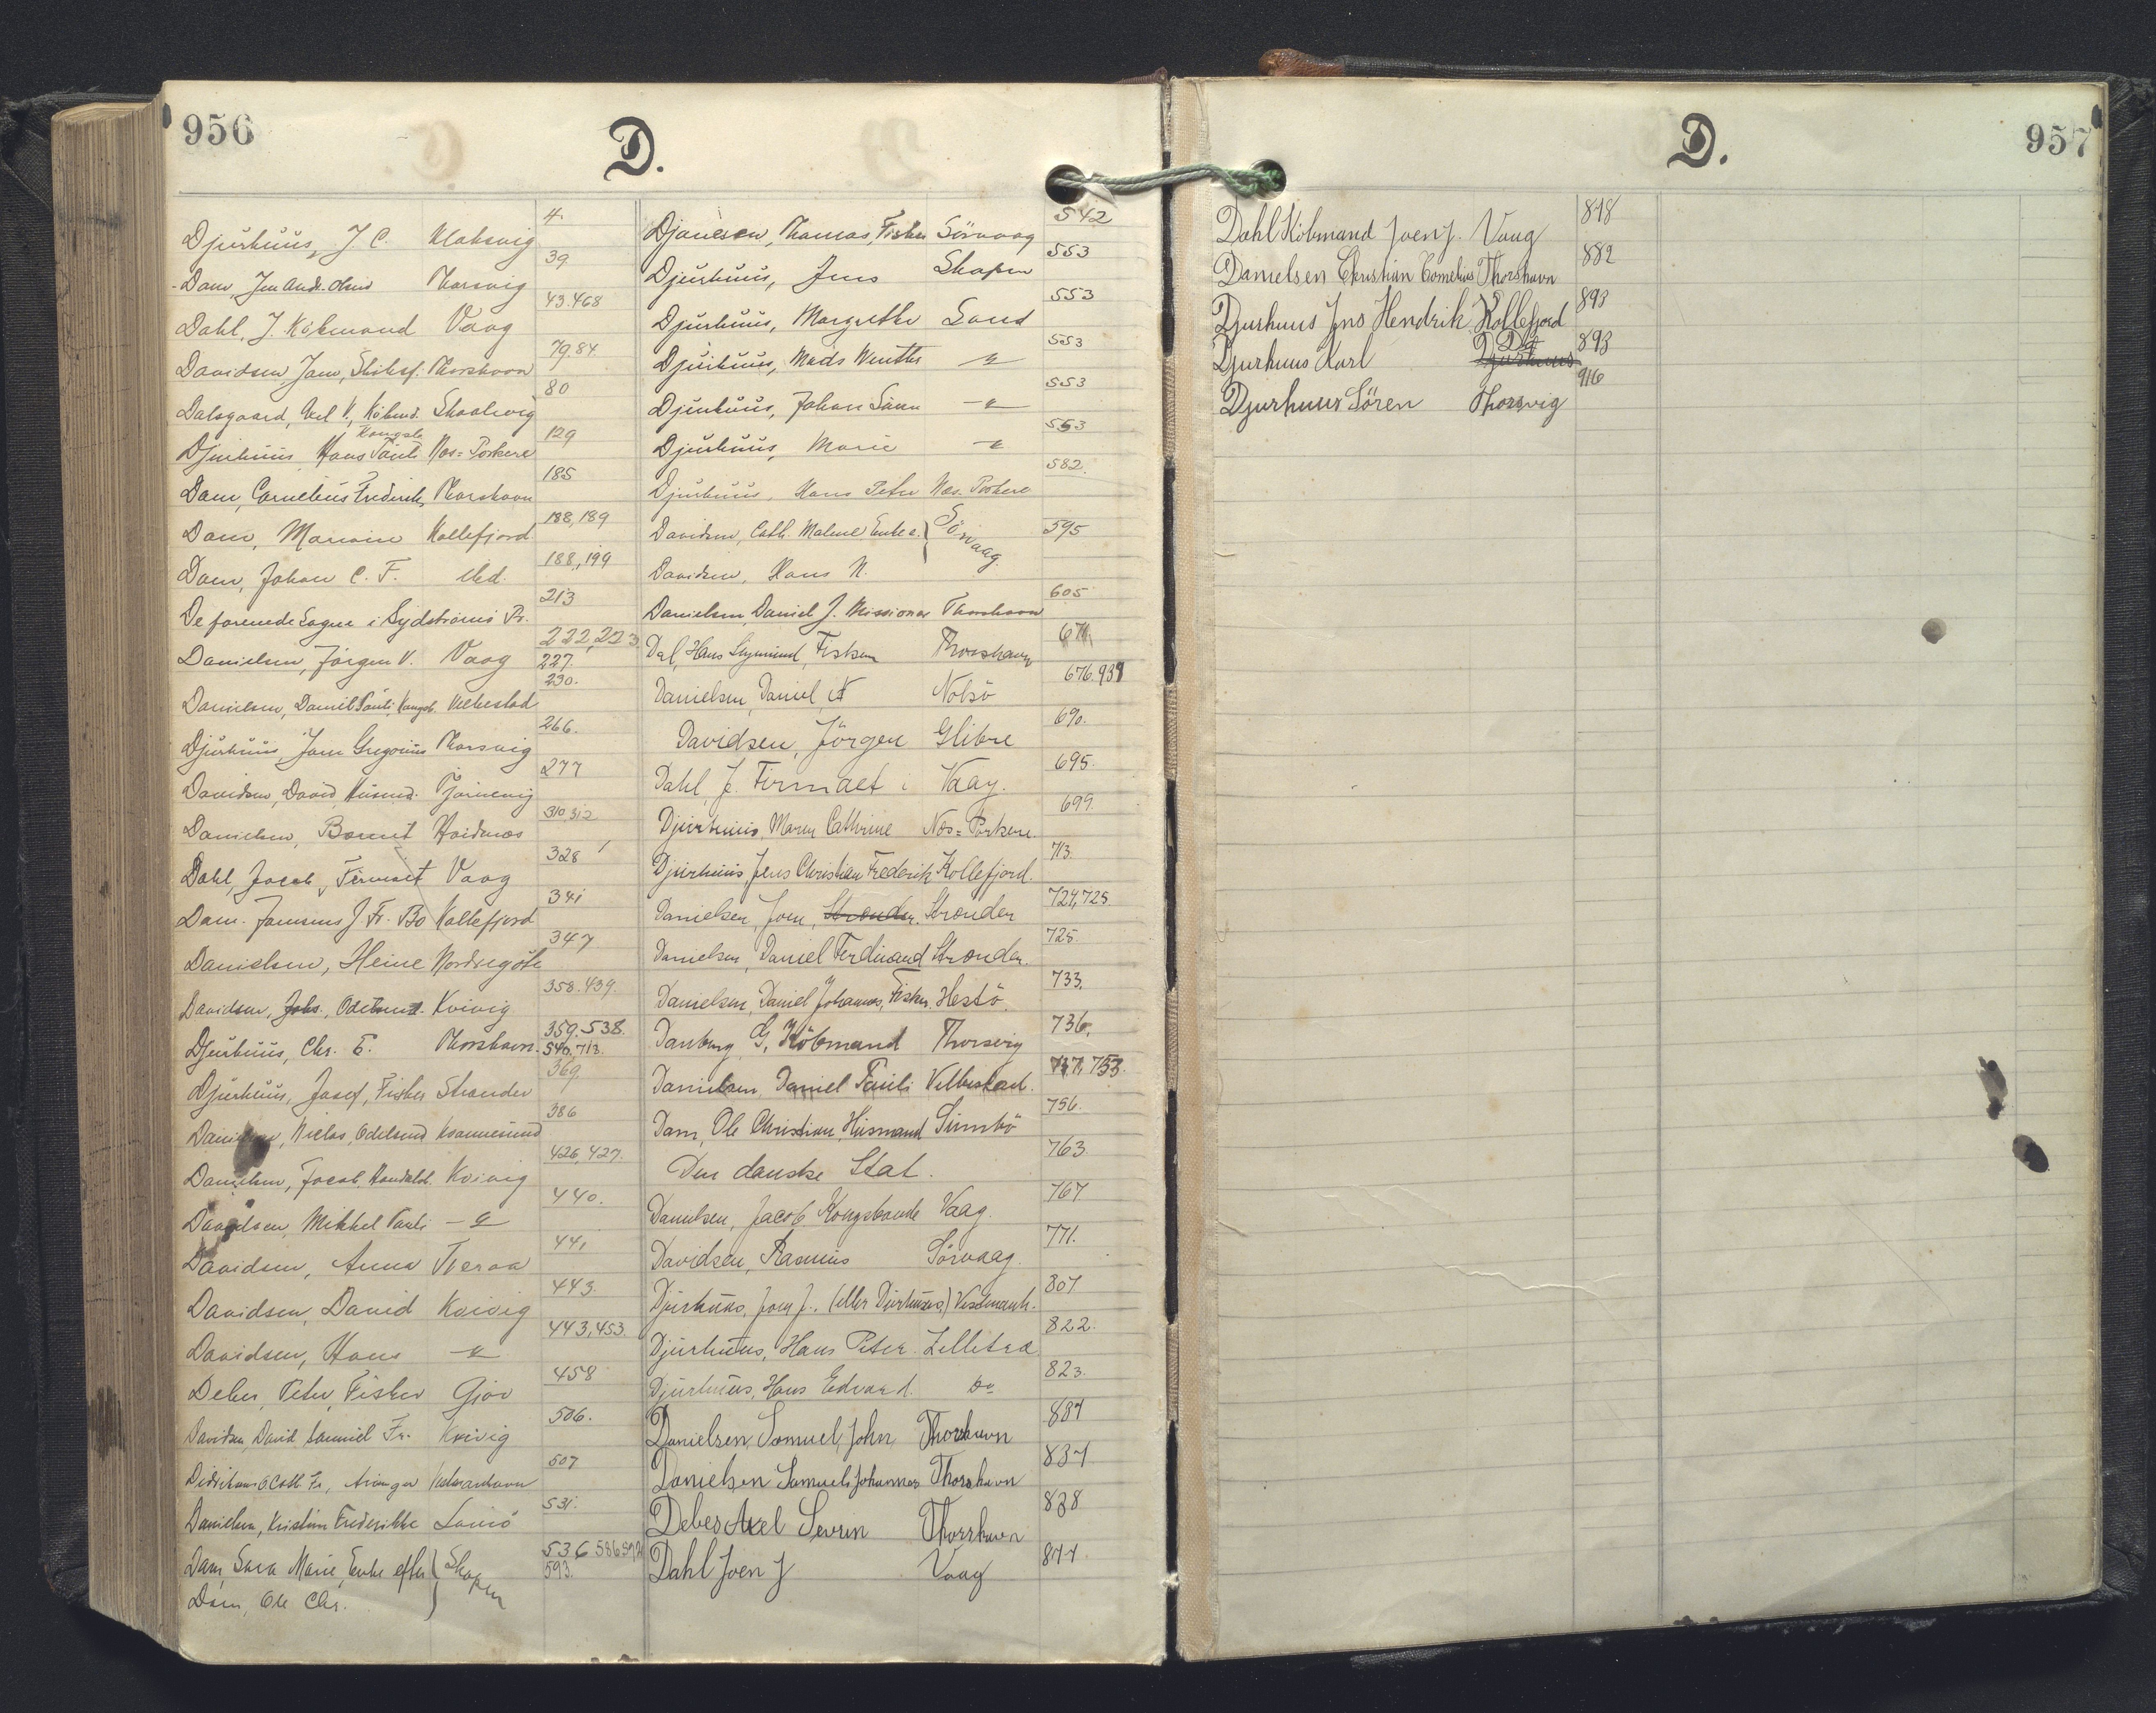 956
D.
4.
Djurhuus, J. C. Klaksvig
39
Dam, Jens Andr. Olsen Thorsvig
43.468
Dahl, J. Köbmand Vaag
79.84
Davidsen, Jan, Thorshavn
80
Dalsgaard, V., Köbmd. Skaalevig
Kongsb.
129
Djurhuus, Hans Pauli Næs=Porkere
185
Dam, Cornelius Frederik, Thorshavn
188, 189
Dam, Kollefjord
188, 199
Dam, Johan C. F. ibd.
213
De forenede Sogne i Sydströmö Pr.
222, 223
Danielsen, Jörgen V. Vaag 227.
230.
Danielsen, Daniel Pauli, Kongsb. Velbestad
266.
Djurhuus, Jan Gregorius Thorsvig
277
Davidsen, David, Husmd. Tjörnevig
310.312
Danielsen, Hvidenæs
328
Dahl, Jacob, Firmaet Vaag
341
Dam. J. Fr. Bo Kollefjord
347
Danielsen, Heine Nordregöte
358.439.
Davidsen, Johs., Odelsmd. Kvivig
359.538.
Djurhuus, Chr. E. Thorshavn. 540, 713.
369.
Djurhuus, Josef, Fisker Strander
386
Danielsen, Niclas, Odelsmd Kvannesund
426, 427.
Danielsen, Jacob, Kvivig
440.
Davidsen, Mikkel Pauli — " —
441
Davidsen, Anna Tveraa
443.
Davidsen, David Kvivig
443, 453.
Davidsen, Hans — " —
458
Debes, Peter, Fisker Gjov
506.
Davidsen, David Samuel Fr. Kvivig
507
O. Cath. Fr.,
531.
Danielsen, Kristine Frederikke
536 586 592
Dam, Sara Marie, Enke efter } Skopen 593.
Dam, Ole Chr.
542
Thomas, Fisker Sörvaag
553
Djurhuus, Jens Skopen
553
Djurhuus, Margrethe Sand
553
Djurhuus, Mads Winther — " —
553
Djurhuus, Johan — " —
553
Djurhuus, Marie — " —
582.
Djurhuus, Hans Peter Næs. Porkere
Davidsen, Cath. Malene Enke e. } Sörvaag 595
Davidsen, Hans N.
605
Danielsen, Daniel J. Missionær Thorshavn
671
Dal, Hans Sigmund, Fisker Thorshavn
676.931
Danielsen, Daniel, Nolsö
690.
Davidsen, Jörgen Glibre
695.
Dahl, J. Firmaet i Vaag.
699.
Djurhuus, Maren Cathrine Næs=Porkere
713.
Djurhuus, Jens Christian Frederik Kollefjord.
724, 725.
Danielsen, Joen, Strender. Strender
725.
Danielsen, Daniel Ferdinand Strender.
733.
Danielsen, Daniel Johannes, Fisker. Hestö.
736.
Danberg, G, Köbmand Thorsvig
737, 753.
Danielsen, Daniel Pauli Velbestad.
756.
Dam, Ole Christian, Husmand Sumbö
763.
Den danske Stat.
767.
Danielsen, Jacob Kongsbonde Vaag.
771.
Davidsen, Rasmus Sörvaag.
807
Djurhuus, Joen J., (eller Djurhuus,) Vestmanh.
822.
Djurhuus, Hans Peter. Lilletræ
823.
Djurhuus, Hans Edvard. Do
837
Danielsen, Samuel, John, Thorshavn
837
Danielsen Samuel Johannes Thorshavn
838
Debes Axel Severin Thorshavn
877
Dahl Joen J Vaag
957
D.
878
Dahl Köbmand Joen J. Vaag
882
Danielsen Christian Cornelius Thorshavn
893
Djurhuus Jens Hendrik Kollefjord
893
Djurhuus Karl Djurhuus Do
916
Djurhuus Sören Thorsvig